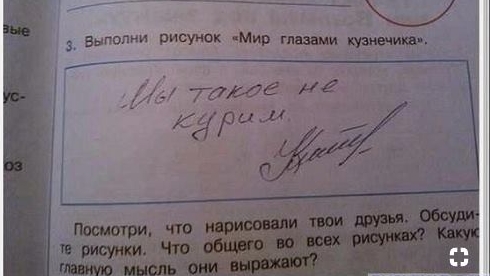 вые
3. Выполни рисунок «Мир глазами кузнечика».
ус-
Мы такое не
курим.
оз
Посмотри, что нарисовали твои друзья. Обсуди-
те рисунки. Что общего во всех рисунках? Какую
главную мысль они выражают?